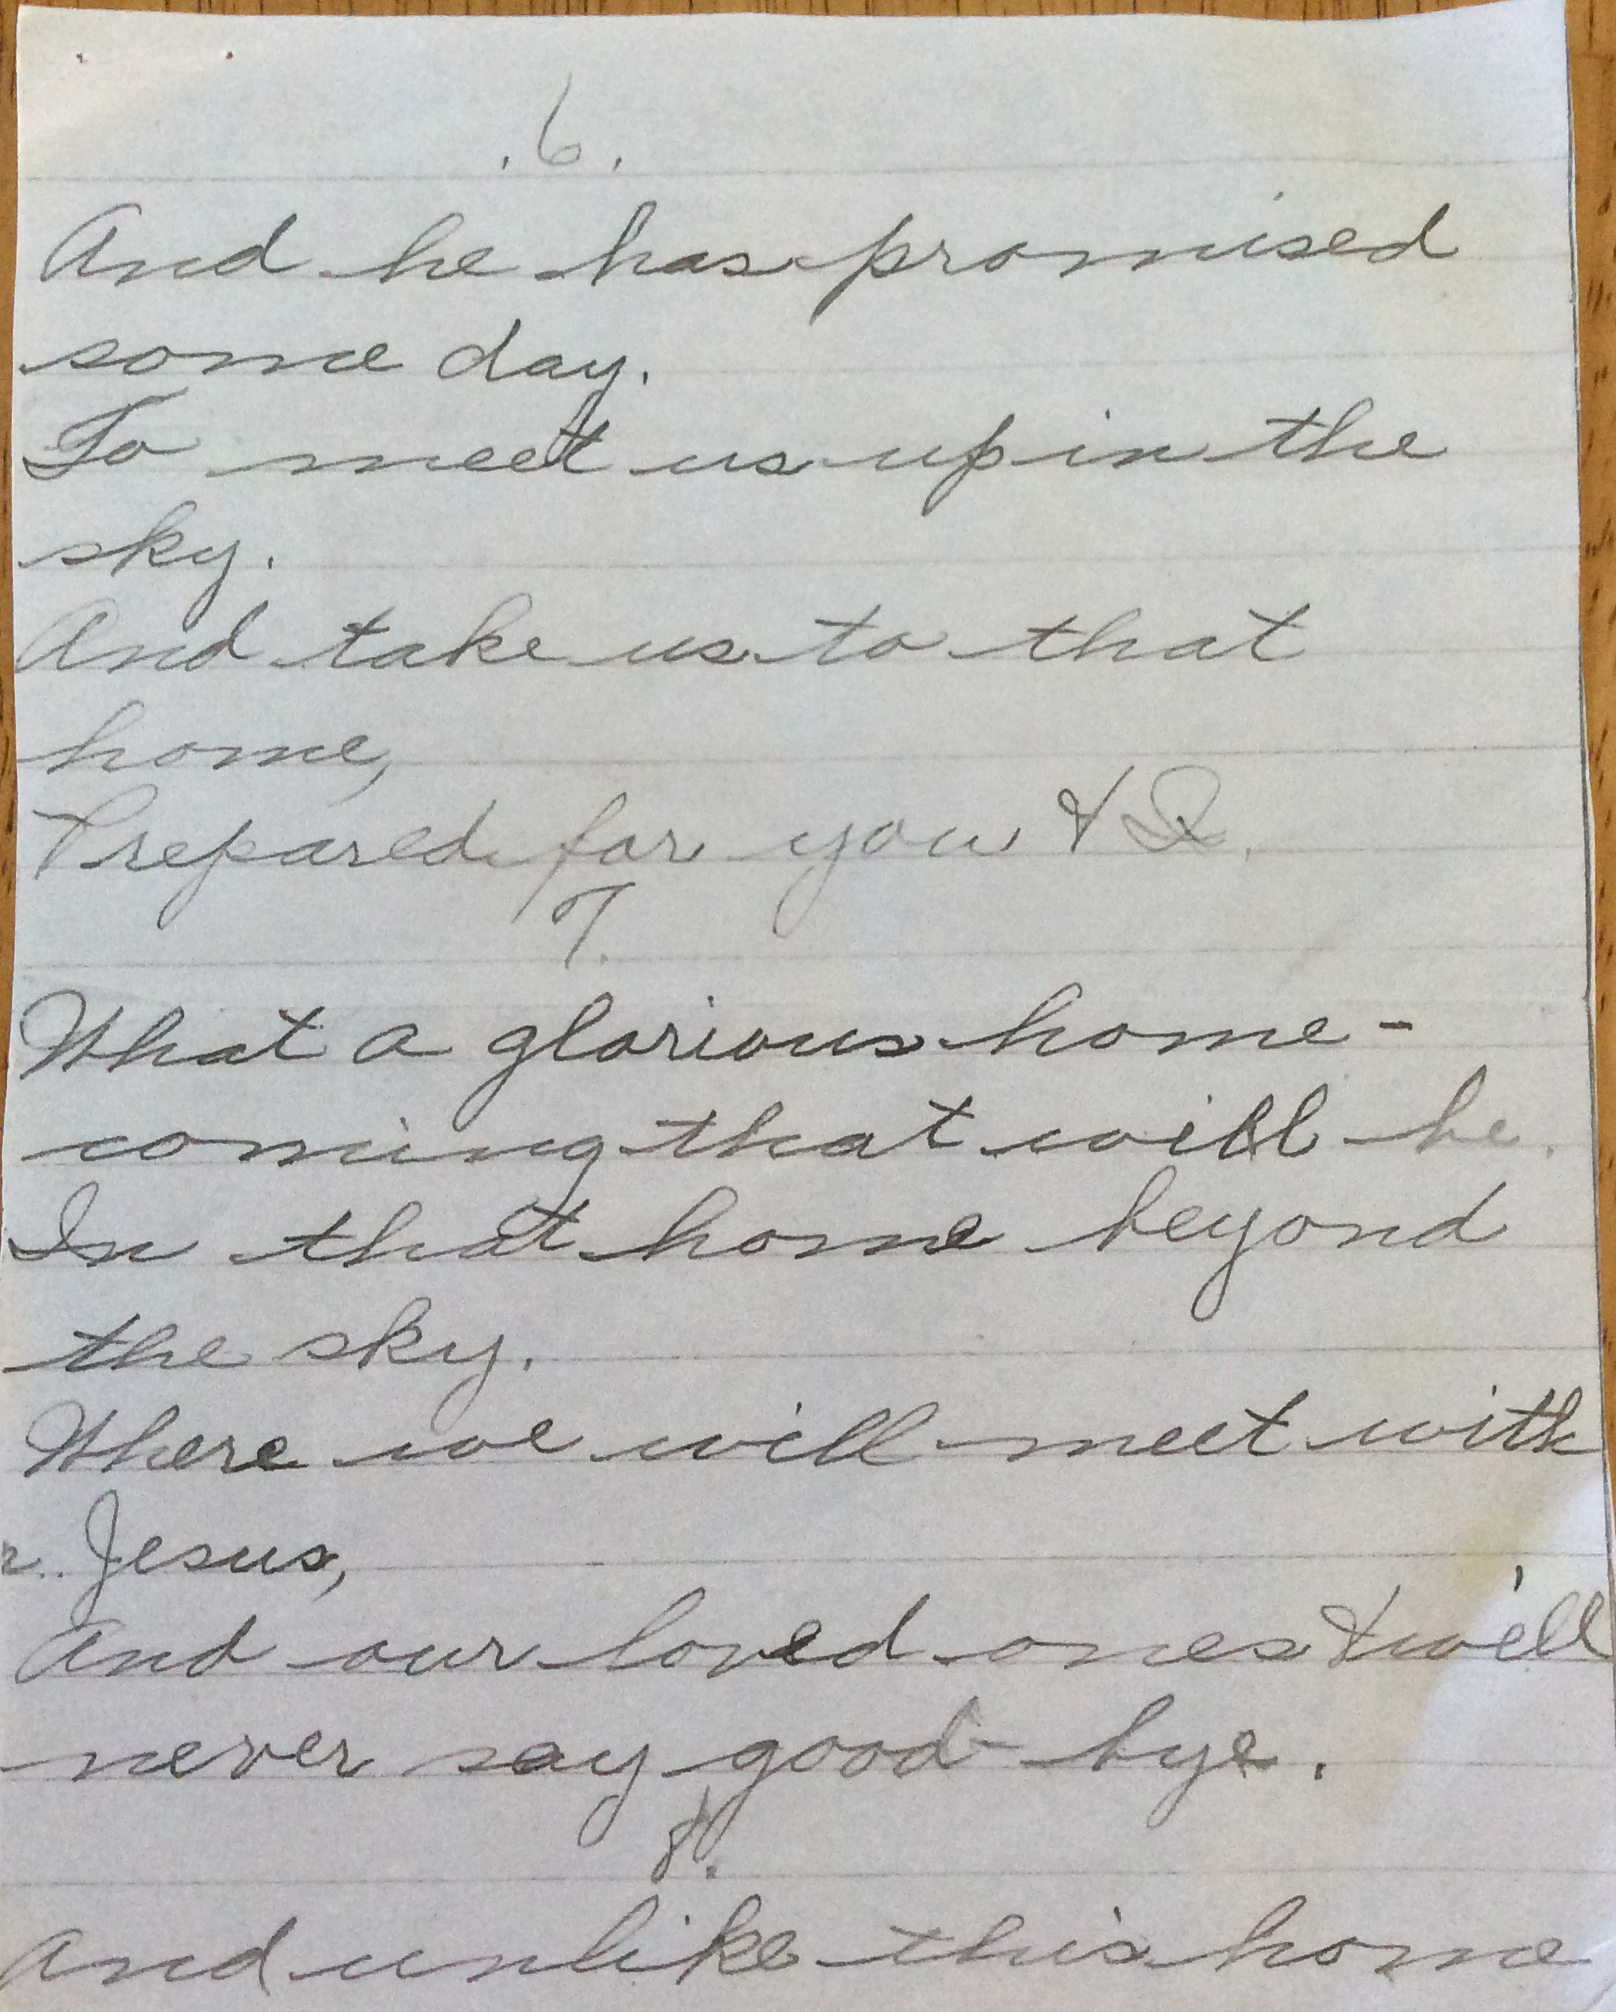 .6.
And he has promised
some day.
To meet us up in the
sky.
And take us to that
home,
Prepared for you & I.
7.
What a glorious home-
coming that will be.
In that home beyond
the sky.
Where we will meet with
Jesus,
And our loved ones & will
never say good-bye.
8.
And unlike this home